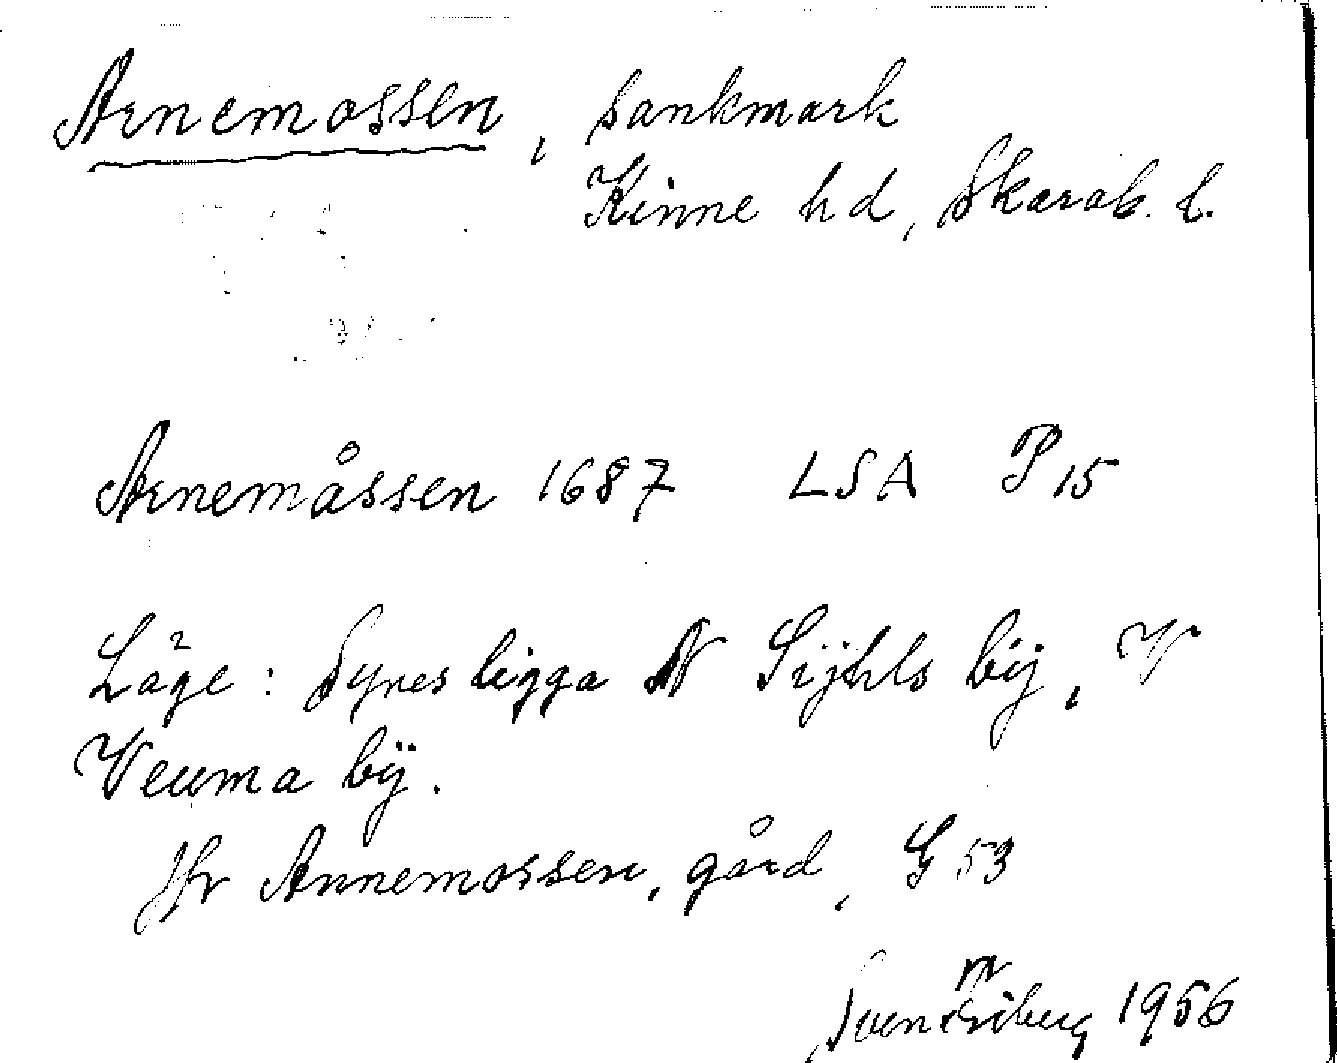 Arnemossen, sankmark
Kinne hd, Skarab. l.
Arnemåssen 1687 LSA P15
Läge: Synes ligga N Sijhls bÿ, V
Veuma bÿ.
Jfr Annemossen, gård, G 53
Sven Friberg 1956